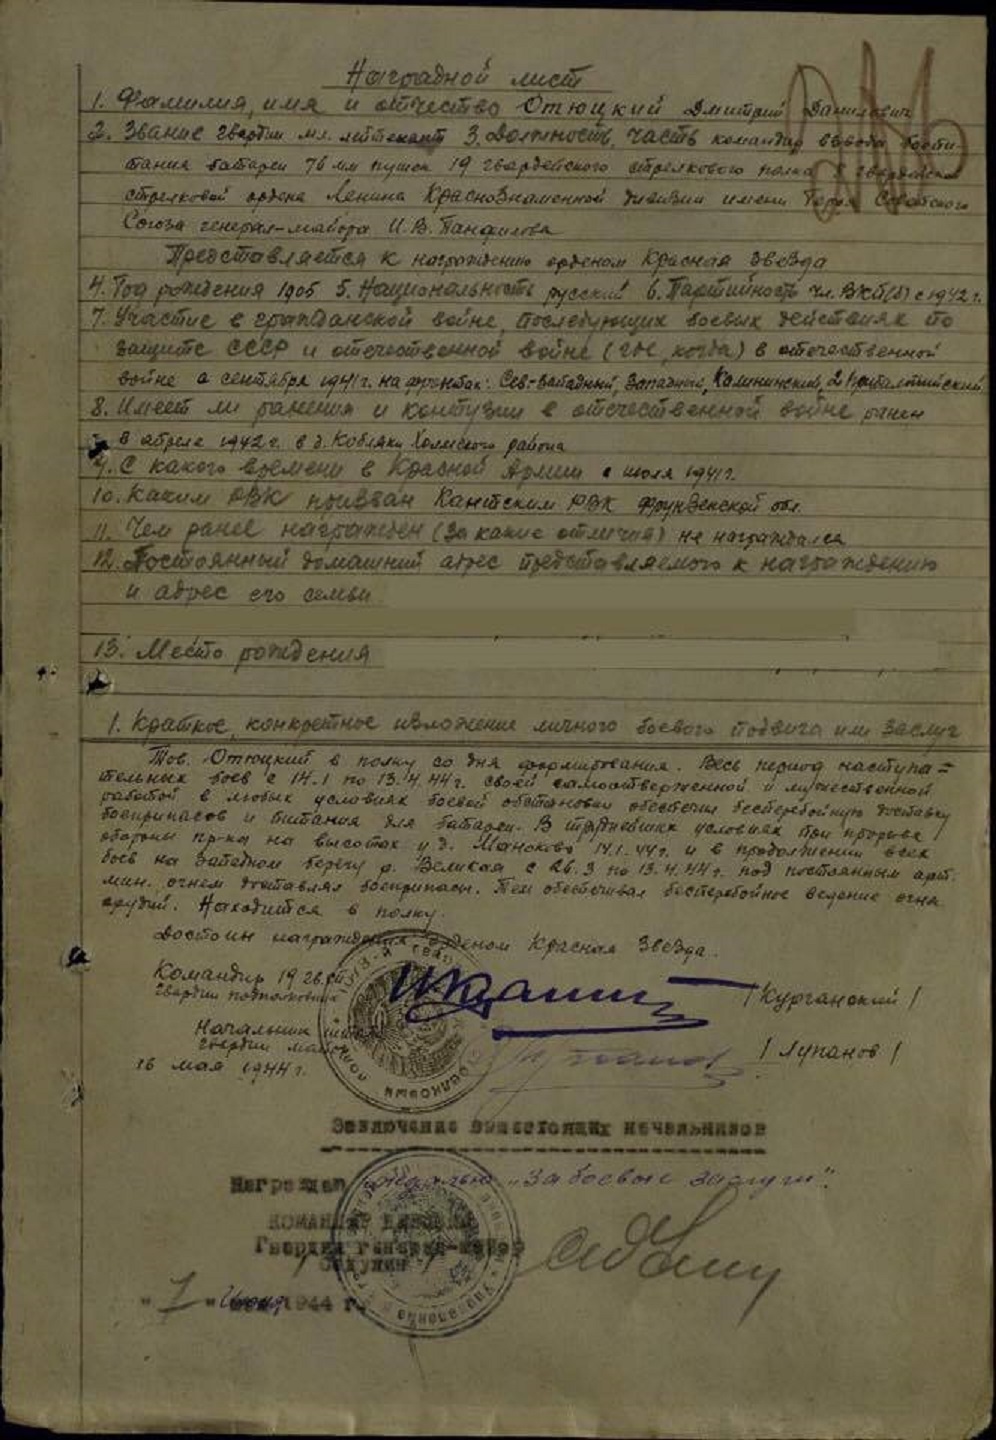 Наградной лист
1. Фамилия, имя и отчество Отюцкий Дмитрий Данилович
2. Звание гвардии мл. лейтенант 3. Должность, часть командир взвода боепи-
тания батареи 76 мм пушек 19 гвардейского стрелкового полка 8 гвардейской
стрелковой ордена Ленина Краснознаменной дивизии имени Героя Советского
Союза генерал-майора И.В. Панфилова
Представляется к награждению орденом Красная Звезда
4. Год рождения 1905 5. Национальность русский 6. Партийность чл. ВКП(б) с 1942 г.
7. Участие в гражданской войне, последующих боевых действиях по
защите СССР и отечественной войне (где, когда) в отечественной
войне с сентября 1941 г. на фронтах: Сев-Западный, Западный, Калининский, 2 Прибалтийский
8. Имеет ли ранения и контузии в отечественной войне ранен
в апреле 1942 г. в д. Кобляки Холмского района
9. С какого времени в Красной Армии с июля 1941 г.
10. Каким РВК призван Кантским РВК Фрунзенской обл.
11. Чем ранее награжден (за какие отличия) не награждался
12. Постоянный домашний адрес представляемого к награждению
и адрес его семьи
13. Место рождения
1. Краткое, конкретное изложение личного боевого подвига или заслуг
Тов. Отюцкий в полку со дня формирования. Весь период наступа=
тельных боев с 14.1 по 13.4.44 г. своей самоотверженной и мужественной
работой в любых условиях боевой обстановки обеспечил бесперебойную доставку
боеприпасов и питания для батареи. В труднейших условиях при прорыве
обороны пр-ка на высотах у д. Маноково 14.1.44 г. и в продолжении всех
боев на западном берегу р. Великая с 26.3 по 13.4.44 г. под постоянным арт.
мин. огнем доставлял боеприпасы. Тем обеспечивал бесперебойное ведение огня
орудий. Находится в полку.
Достоин награждения орденом Красная Звезда.
Командир 19 гв. сп
гвардии подполковник /Курганский/
Начальник штаба
гвардии майор /Лупанов/
16 мая 1944 г.
Заключение вышестоящих начальников
Награжден медалью „За боевые заслуги".
КОМАНДИР ДИВИЗИИ
Гвардии генерал-майор
/Седулин/
"7" июня 1944 г.